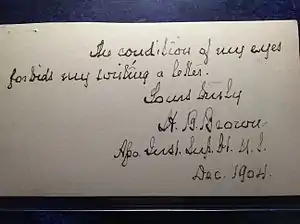 The condition of my eyes
forbids my writing a letter.
Yours truly
H. B. Brown
Just. Sup. Ct. U. S.
Dec. 1904.